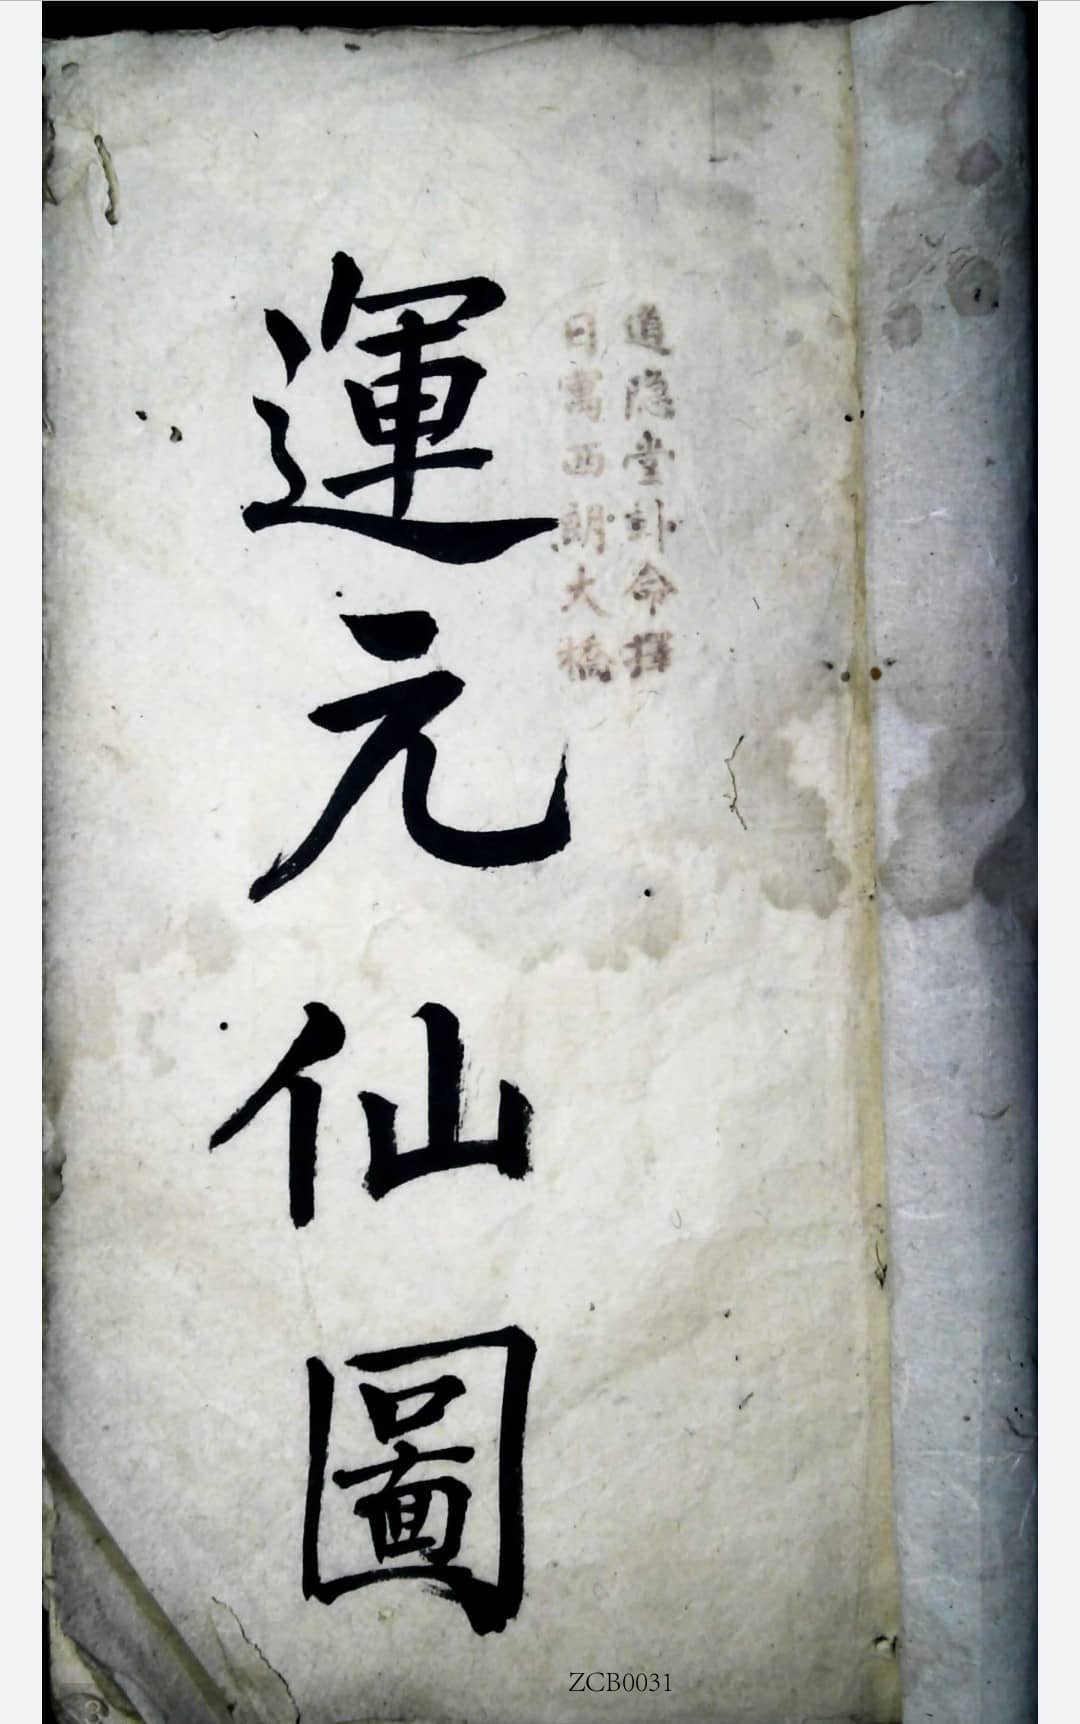 道隐堂卦命擇
日寓西朗大橋
運元仙圖
ZCB0031